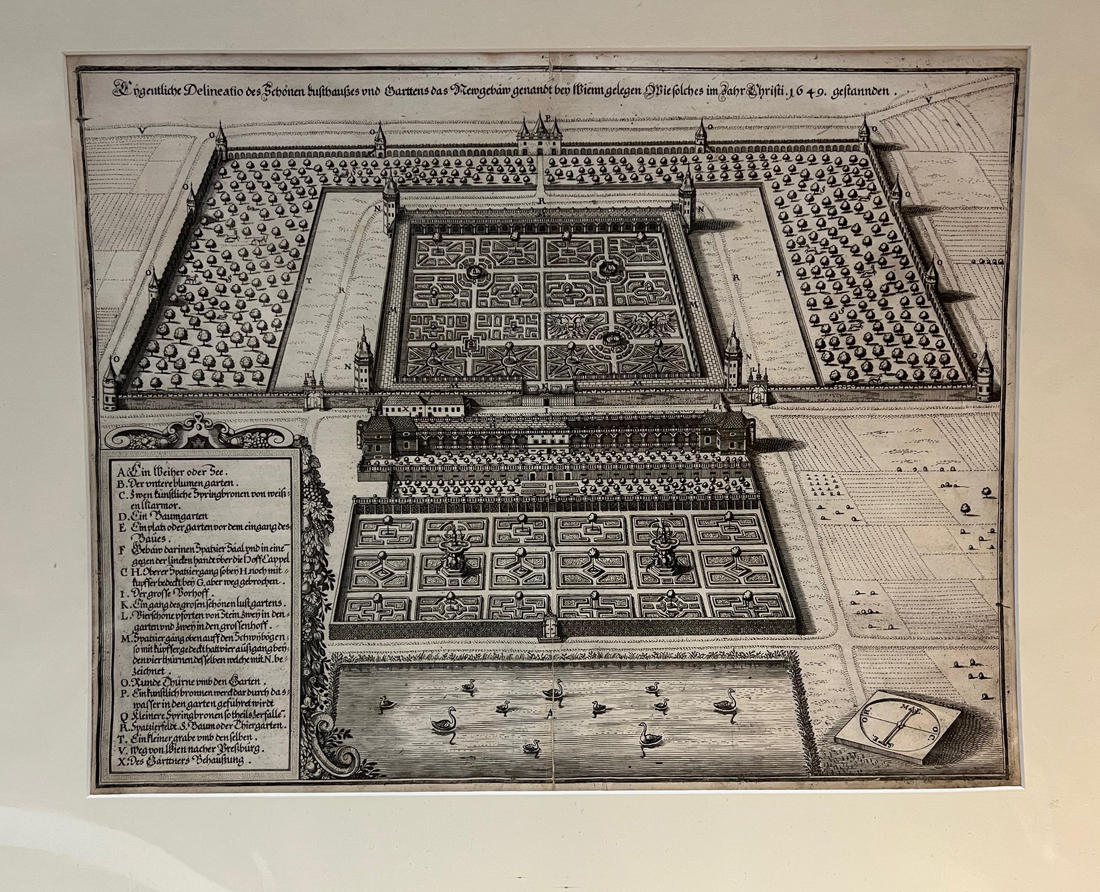 Eygentliche Delineatio des Schönen Lusthaußes vnd Garttens das Newgebäw genandt bey Wienn gelegen Wie solches im Jahr Christi. 1649. gestannden.
A. Ein Weiher oder See.
B. Der vntere blumen garten.
C. Zwen künstliche Springbronen von weiß-
en Marmor.
D. Ein Baumgarten
E Ein platz oder garten vor dem eingang des
Baues.
F Gebäw darinen Spatzier Saal vnd in eine
gegen der lincken handt vber die Hoff Cappel
G H. Oberer Spatziergang so bey H. noch mit
kupffer bedeckt bey G. aber weg gebrochen.
I. Der grosse Vorhoff.
K. Ein gang des grosen schönen lustgartens.
L. Vier schöne pforten von Stein, zwey in den
garten vnd zwey in den grossen hoff.
M. Spatzier gang oben auff den Schwybögen
so mit kupffer gedeckt hatt vier außgang bey
den vier thürnen desselben welche mit N. be-
zeichnet.
O. Runde Thürne vmb den Garten.
P. Ein künstlich bronnen werck dar durch das
wasser in den garten geführet wirdt
Q Kleinere Springbronen so theils zerfalle.
R. Spatzierfeldt. S. Baum oder Thiergarten.
T. Ein kleiner grabe vmb denselben.
V. Weg von Wien nacher Preßburg.
X. Des Gärttners Behaußung.